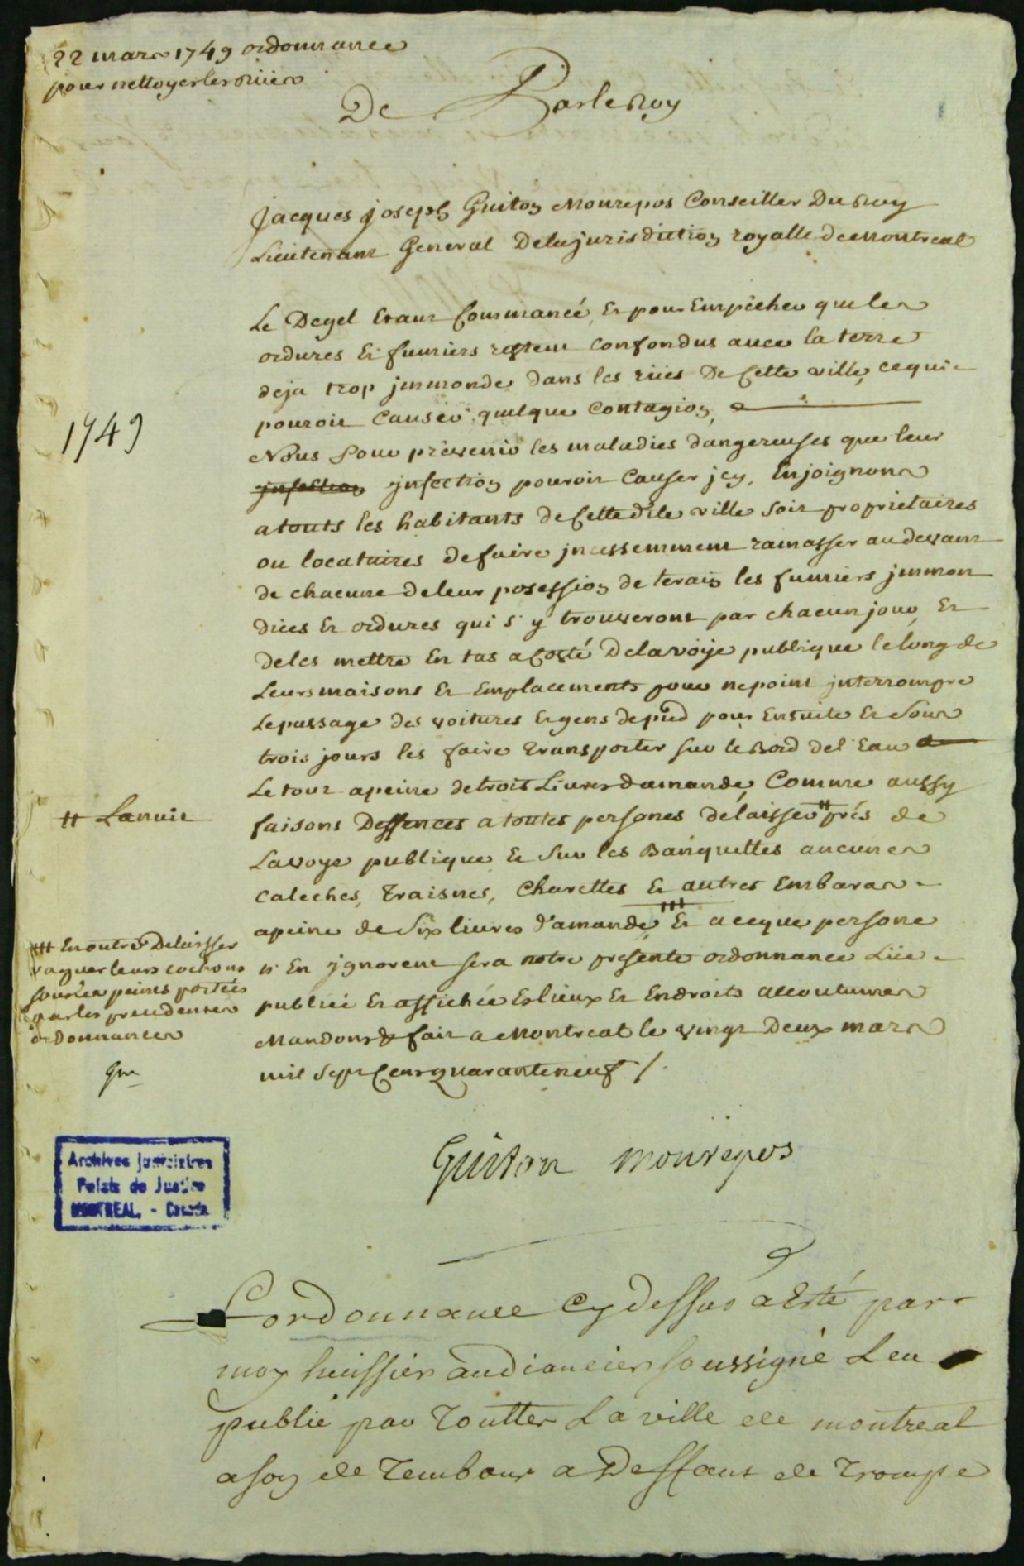 22 mars 1749 ordonnance
pour nettoyer les rües
De Par le Roy
Jacques Joseph Guiton Monrepos Conseiller Du Roy
Lieutenant General De la jurisdiction royalle de Montreal
Le Degel Etant Commancé, Et pour Empêcher que les
ordures Et fumiers restent confondus avec la terre
deja trop jmmonde dans les rües De Cette ville, ce qui
pouroit Causer quelque Contagion,
1749
Nous pour prevenir les maladies dangereuses que leur
jnfection jnfection pouroit Causer jcy, Enjoignons
a touts les habitants de Cette dite ville soit proprietaires
ou locataires de faire jncessemment ramasser au devant
de chacune de leur posession de terain les fumiers jmmon
dices Et ordures qui s'y trouveront par chacun jour, Et
de les mettre En tas a Costé De la voÿe publique le long de
Leurs maisons Et Emplacements pour ne point jnterrompre
Le passage des voitures Et gens de pied pour Ensuite Et sous
trois jours les faire transporter sur le Bord de l'Eau
Le tout a peine de trois Livres d'amande, Comme aussy
faisons Deffences a toutes persones de laisser # prés de
# La nuit
La voye publique Et sur les Banquettes aucunes
Caleches, Traisnes, Charettes Et autres Embaras
a peine de Six livres d'amande, ## Et a ce que persone
## En outre De laisser
vaquer leurs cochons
sous les peines portées
par les precedentes
ordonnances
Gm
n'En jgnore sera notre presente ordonnance Lüe
publiée Et affichée Es lieux Et Endroits accoutumés
Mandons & fait a Montreal le vingt Deux mars
mil sept Cent quarante neuf /.
Guiton Monrepos
Archives Judiciaires
Palais de Justice
MONTREAL, - Canada
L'ordonnance Cy dessus a Esté par
moy huissier audiancier soussigné Leu
publié par Toutter La ville de montreal
a son de Tembour a Deffaut de Trompe